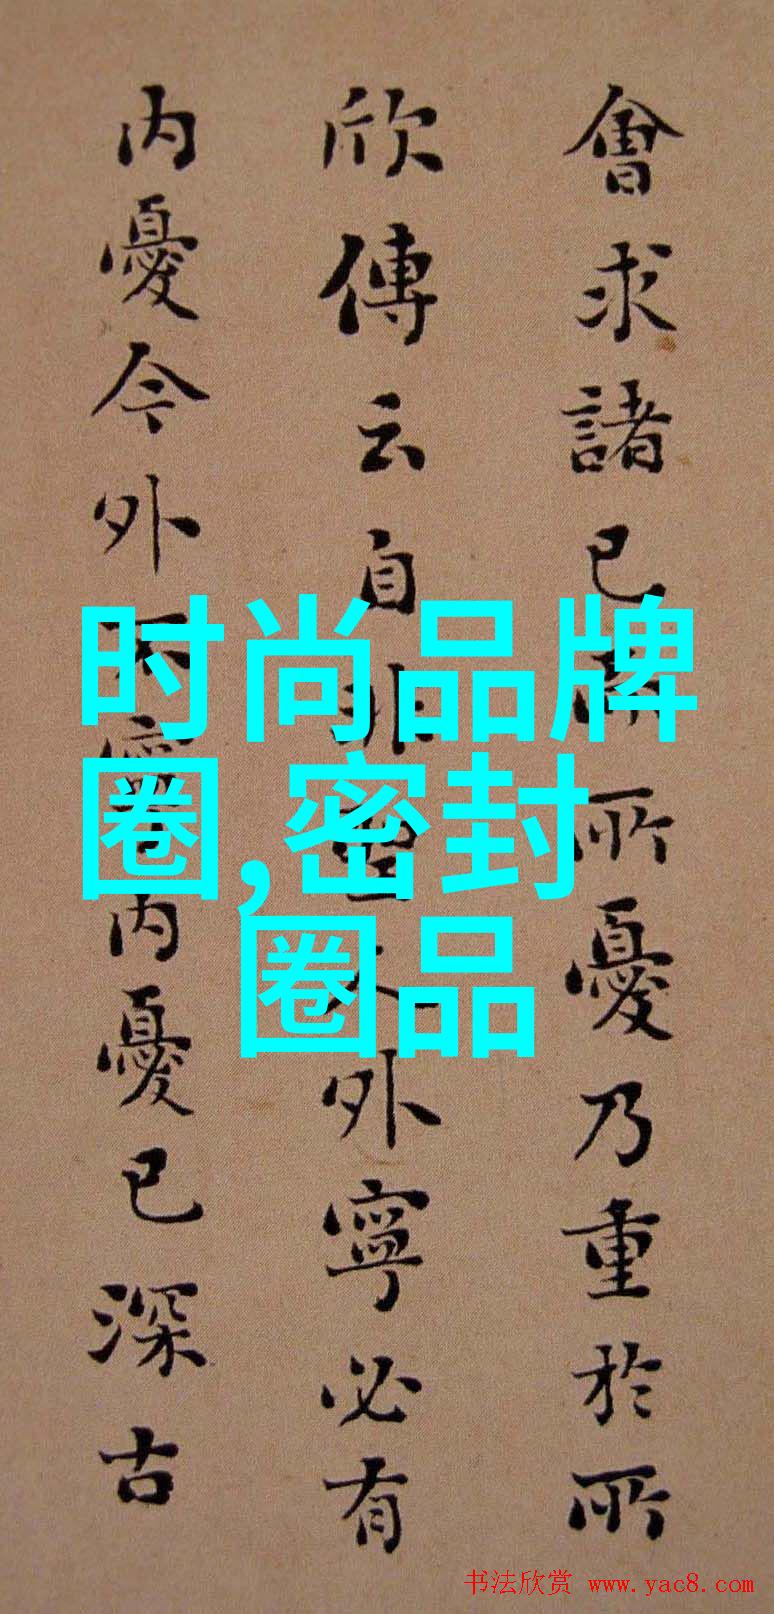 會求諸已而所憂乃重於所
欣傳云自非聖人外寧必有
内憂今外不寧内憂已深古
时尚品牌
圈,密封
圈品
书法欣赏 www.yac8.com